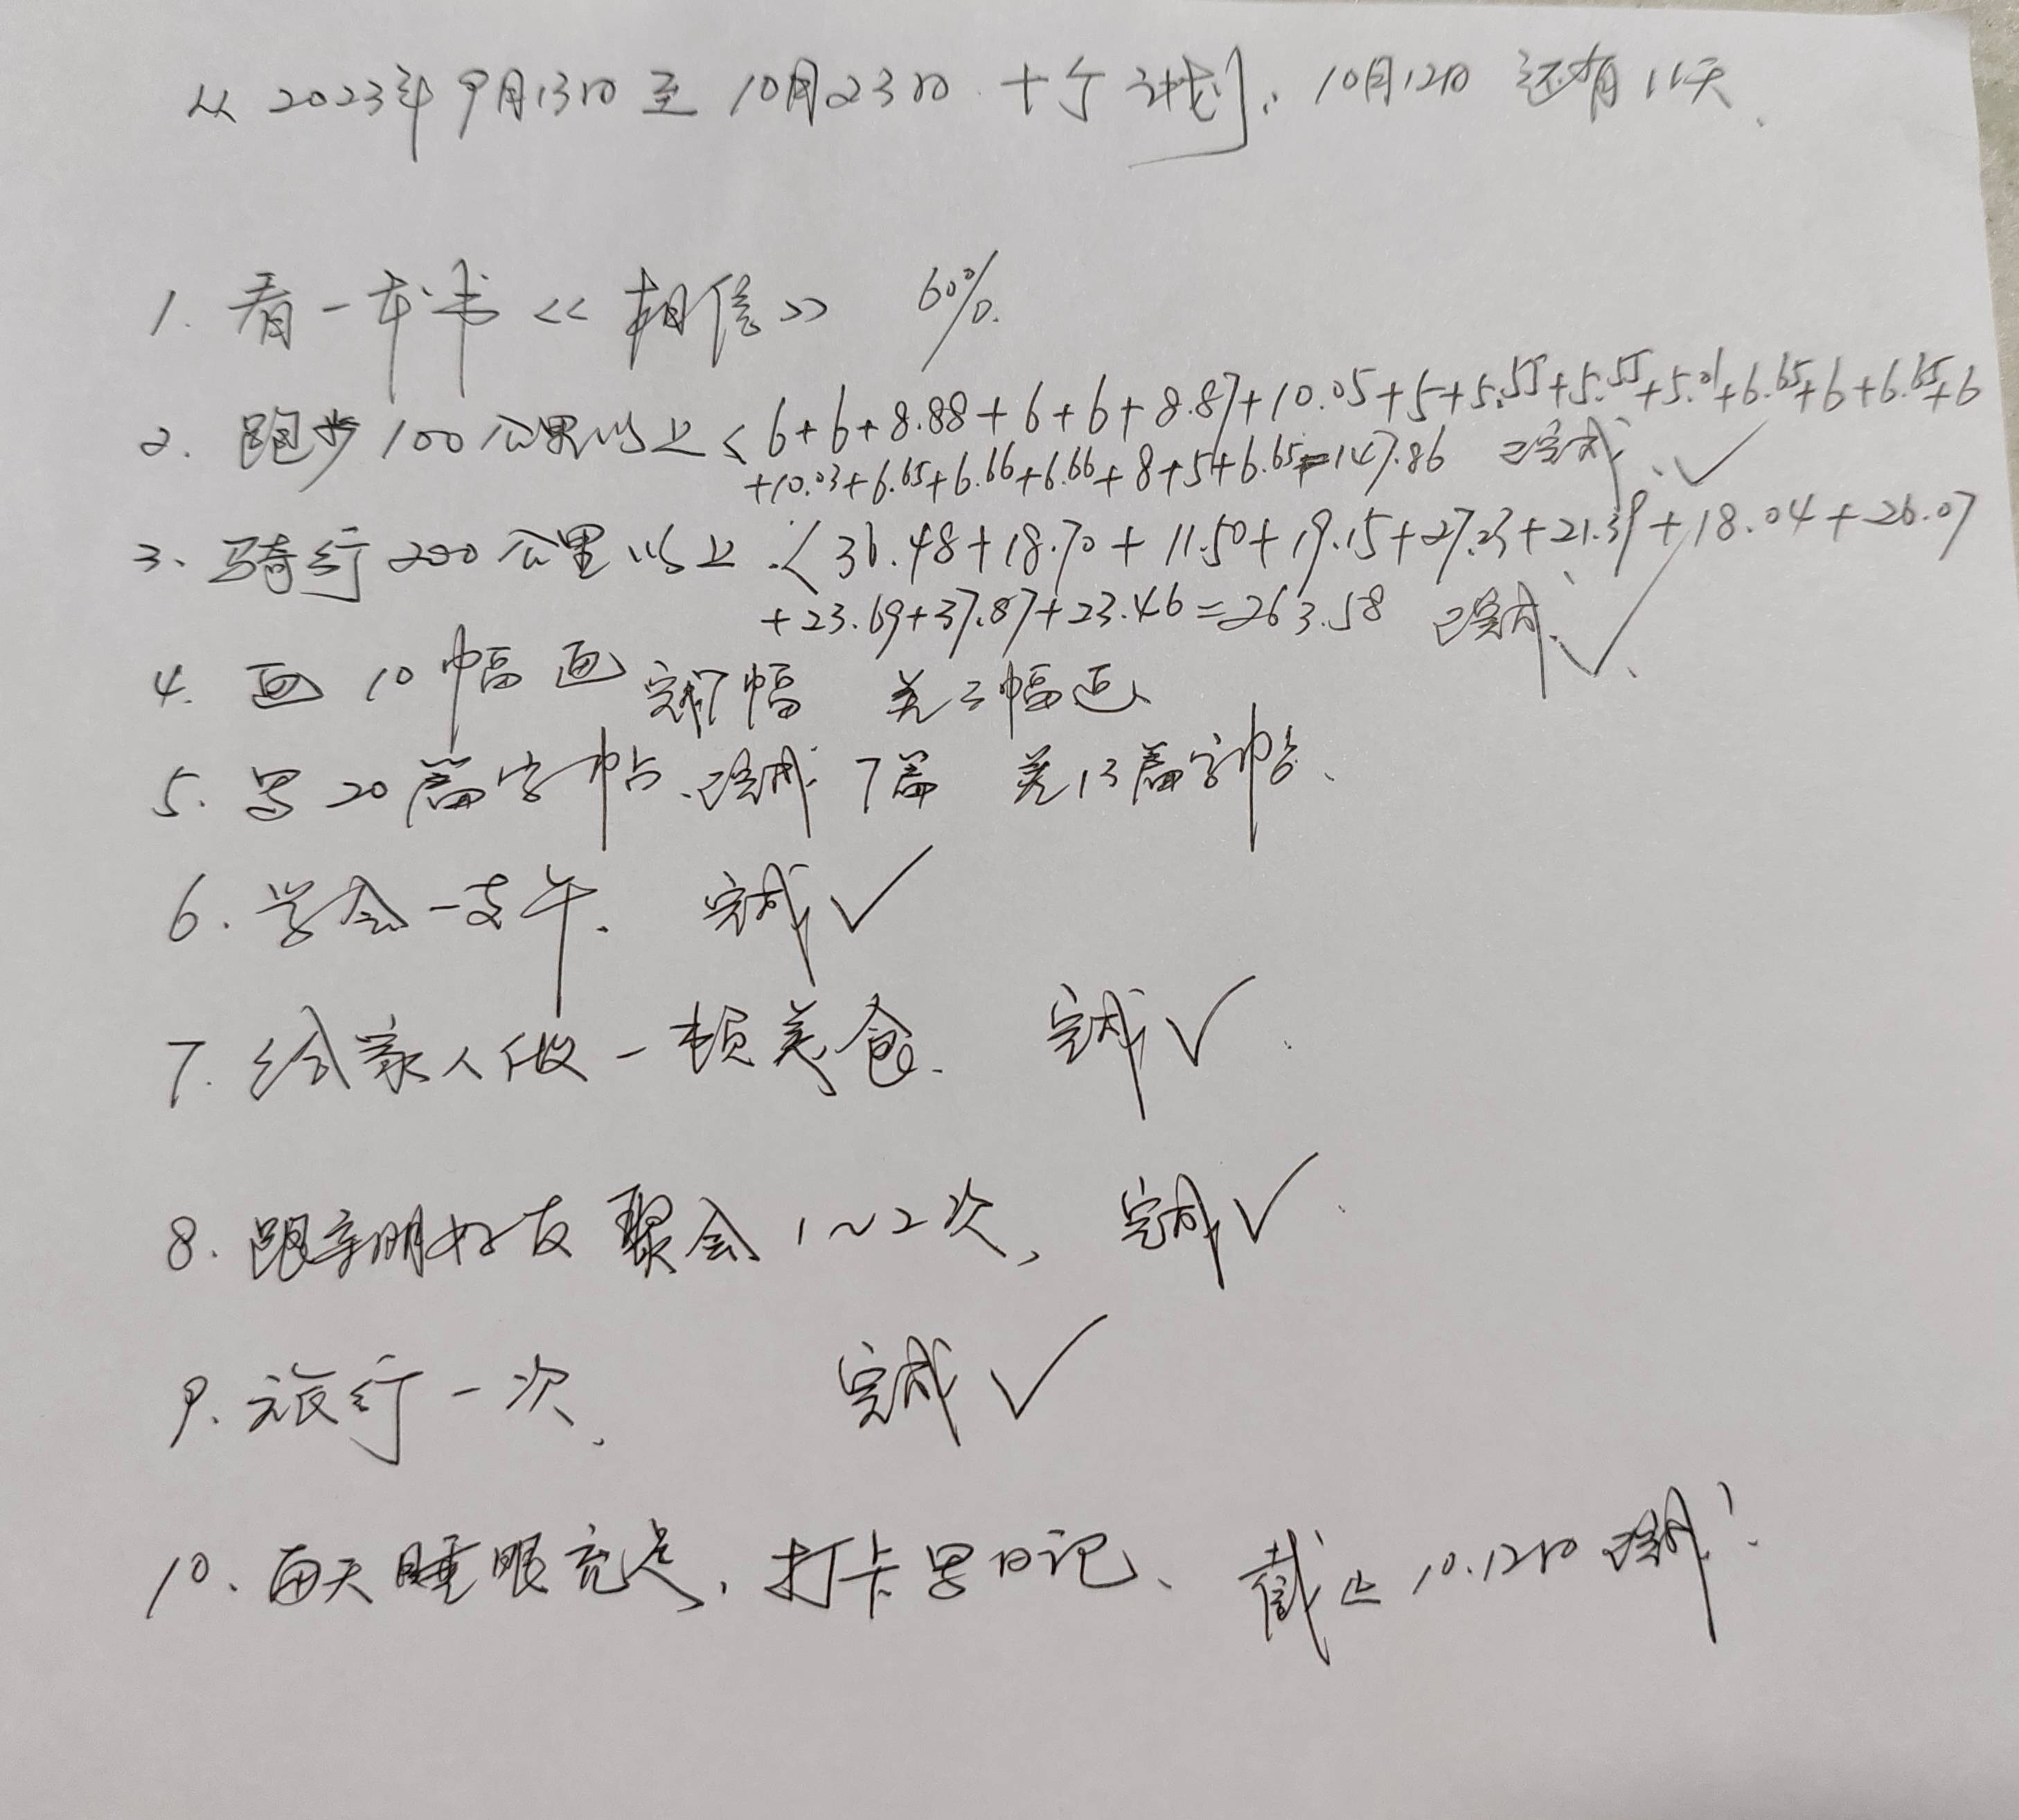 从2023年9月13日至10月23日十个计划。10月12日还有11天、
1. 看一本书《相信》 60%.
2. 跑步100公里以上<6+6+8.88+6+6+8.87+10.05+5+5.55+5.55+5.01+6.65+6+6.65+6
+10.03+6.65+6.66+6.66+8+5+6.65=147.86 已完成、✓
3、骑行200公里以上.<36.48+18.70+11.50+19.15+27.23+21.39+18.04+26.07
+23.69+37.87+23.46=263.58 已完成、✓
4. 画10幅画 完成7幅 差三幅画
5. 写20篇字帖、已完成7篇 差13篇字帖、
6. 学会一支午. 完成✓
7. 给家人做一顿美食. 完成✓.
8. 跟亲朋好友聚会1~2次、完成✓.
9. 旅行一次、 完成✓
10、每天睡眠充足，打卡写日记、截止10.12日已完成!